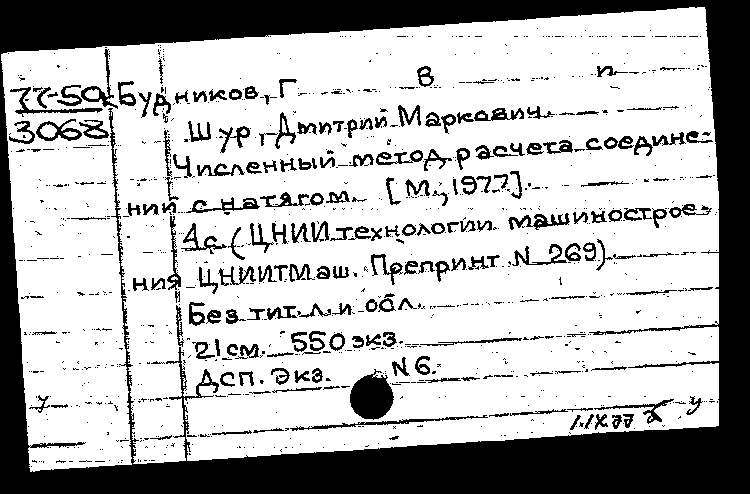 77-50к Будников, Г В п
3068 Шур, Дмитрий Маркович.
Численный метод расчета соедине-
ний с натягом. [М., 1977].
4с (ЦНИИ технологии машинострое-
ния ЦНИИТМаш. Препринт N 269)
Без тит. л. и обл.
21 см. 550 экз.
ДСП. Экз. N 6.
у
1.IX.77 у